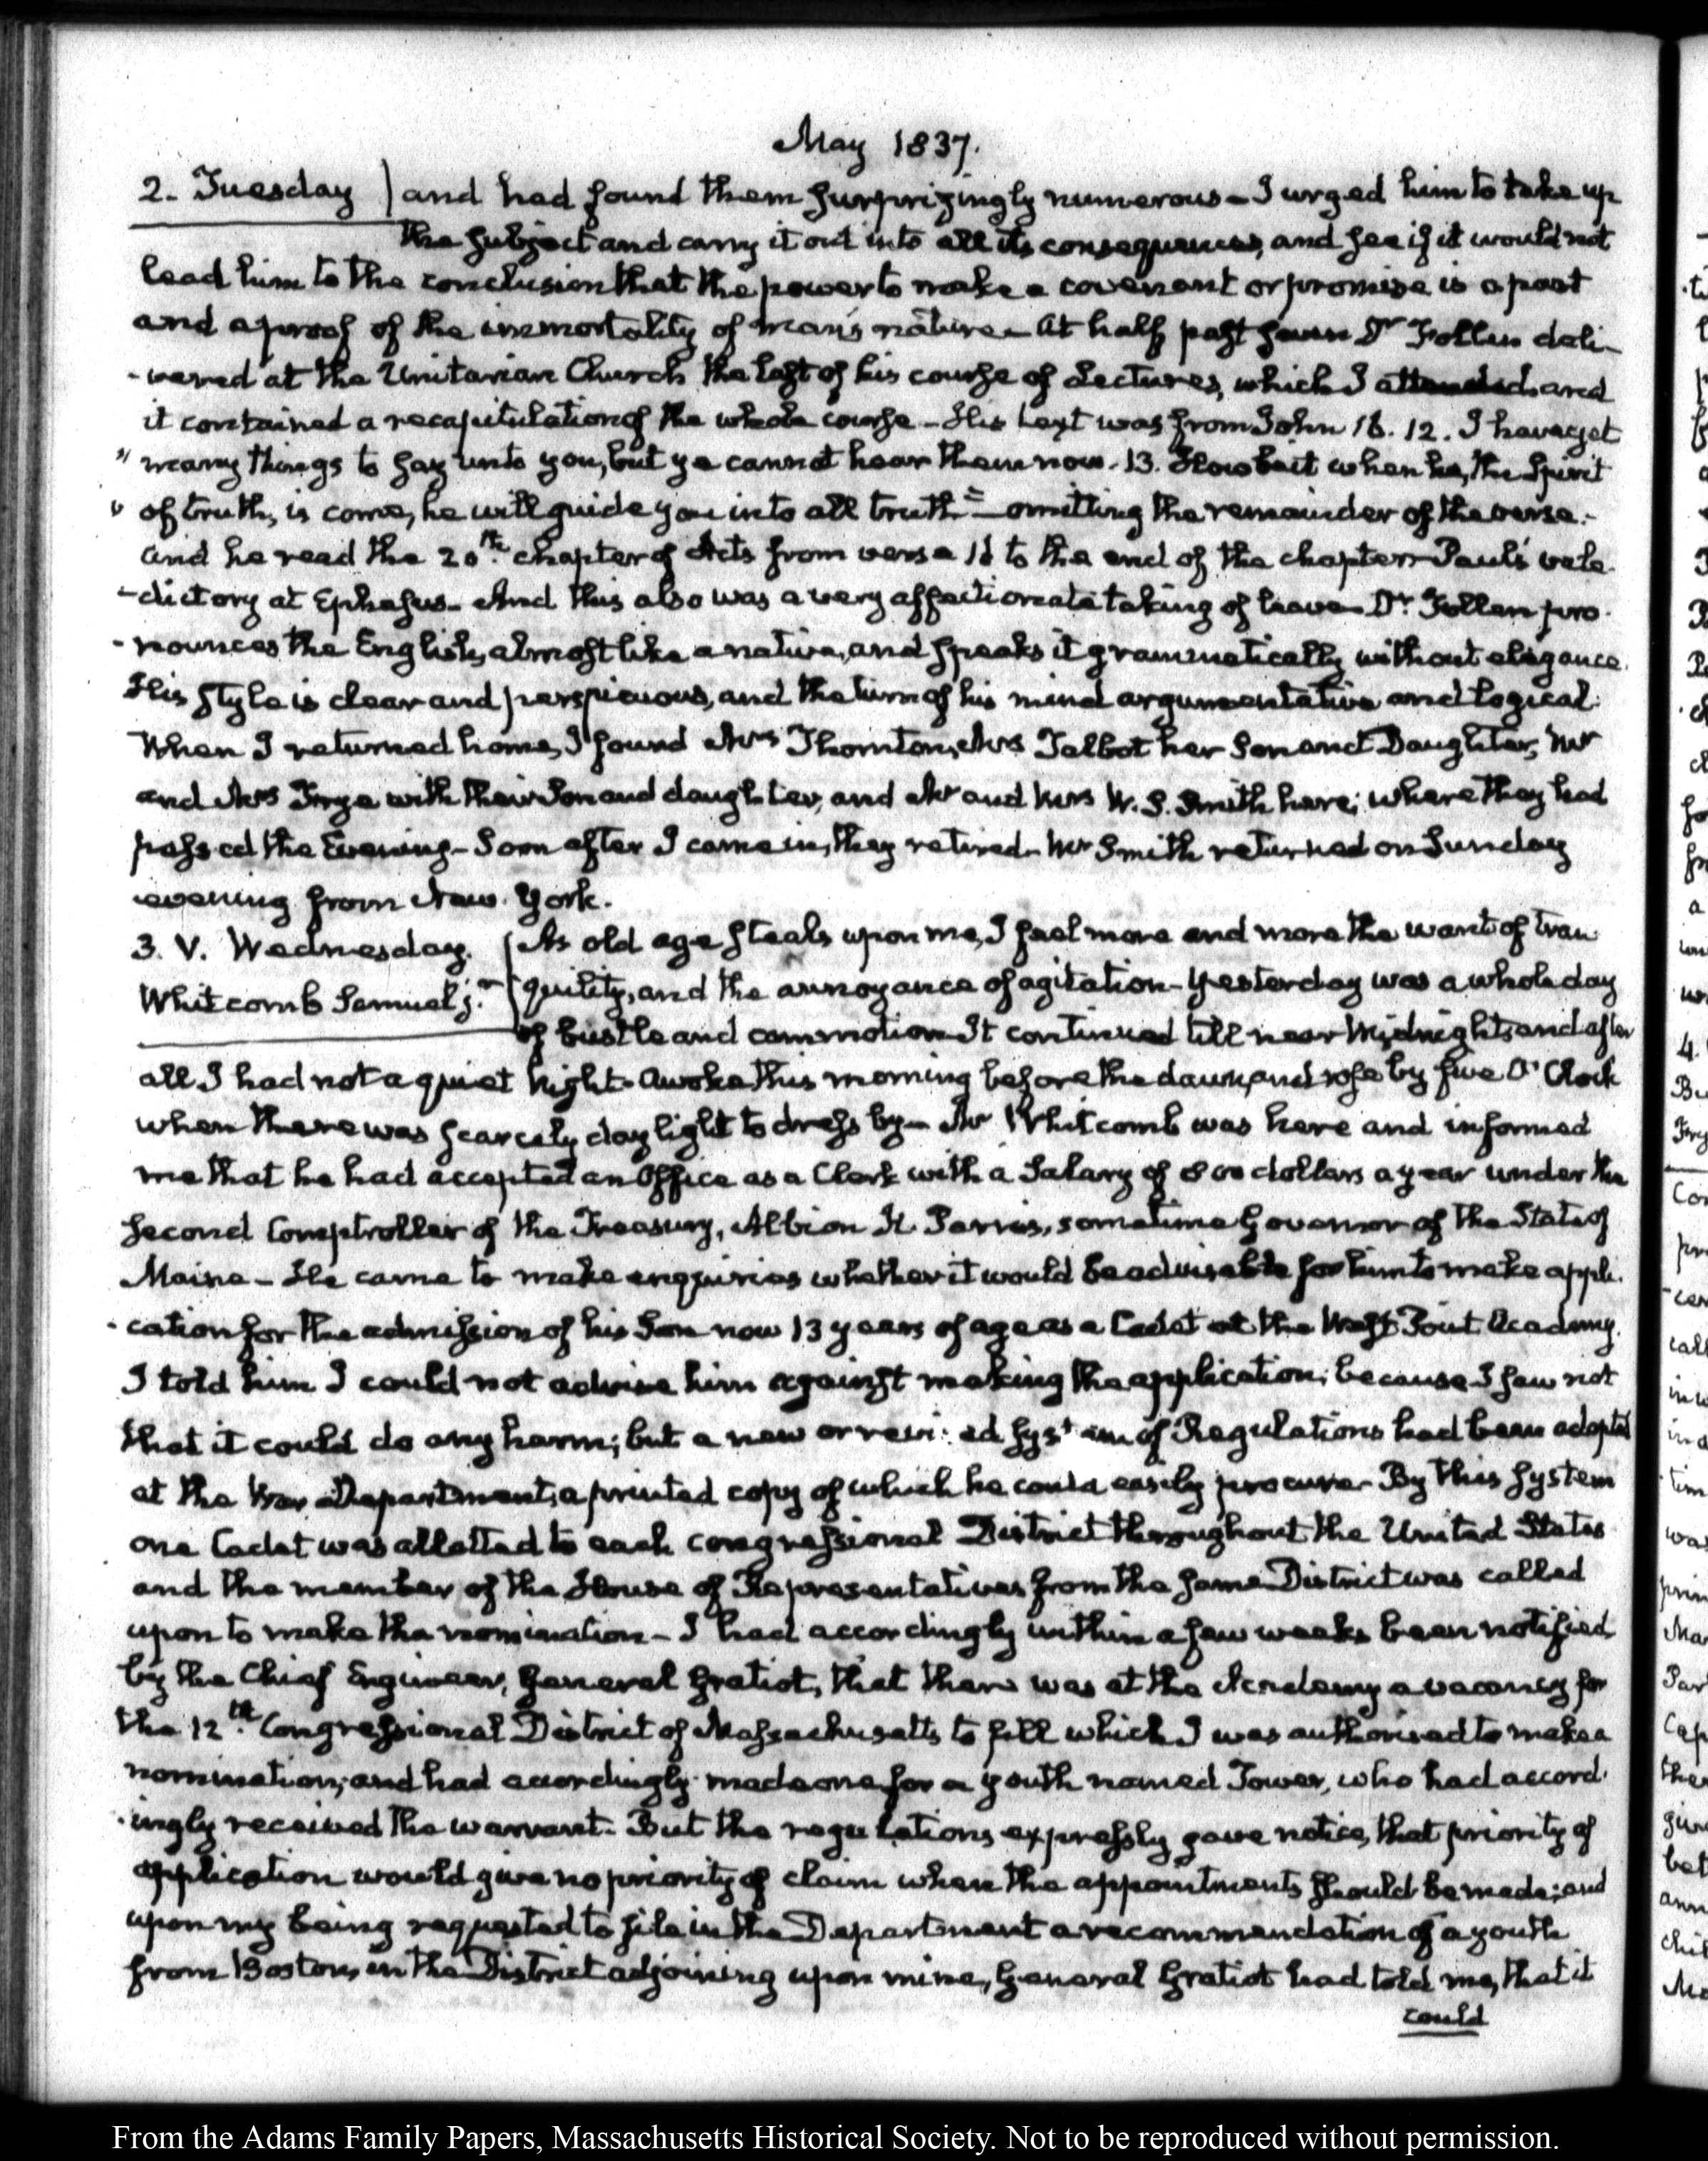 May 1837.
2. Tuesday) and had found them surprizingly numerous - I urged him to take up
the subject and carry it out into all its consequences, and see if it would not
lead him to the conclusion that the power to make a covenant or promise is a part
and a proof of the immortality of man's nature - At half past seven Dr Follen deli-
-vered at the Unitarian Church the last of his course of Lectures, which I attended and
it contained a recapitulation of the whole course - His text was from John 16. 12. I have yet
" many things to say unto you, but ye cannot bear them now. 13. Howbeit when he, the Spirit
" of truth, is come, he will guide you into all truth" - omitting the remainder of the verse. -
and he read the 20th. chapter of Acts from verse 16 to the end of the chapter - Paul's vale-
-dictory at Ephesus - And this also was a very affectionate taking of leave - Dr. Follen pro-
-nounces the English, almost like a native, and speaks it grammatically without elegance.
His style is clear and perspicuous, and the turn of his mind argumentative and logical.
When I returned home, I found Mrs Thornton, Mrs Talbot her Son and Daughter, Mr
and Mrs Frye with their Son and daughter, and Mr and Mrs W. S. Smith here; where they had
passed the Evening - Soon after I came in, they retired - Mr Smith returned on Sunday
evening from New-York.
3. V. Wednesday. (As old age steals upon me, I feel more and more the want of tran-
Whitcomb Samuel jr. (quility, and the annoyance of agitation - Yesterday was a whole day
of bustle and commotion - It continued till near Midnight, and after
all I had not a quiet Night - Awoke this morning before the dawn, and rose by five O'Clock
when there was scarcely day light to dress by - Mr Whitcomb was here and informed
me that he had accepted an Office as a Clerk with a Salary of 800 dollars a year under the
Second Comptroller of the Treasury, Albion K. Parris, sometime Governor of the State of
Maine - He came to make enquiries whether it would be advisable for him to make appli-
-cation for the admission of his Son now 13 years of age as a Cadet at the West-Point Academy.
I told him I could not advise him against making the application; because I saw not
that it could do any harm; but a new or revised system of Regulations had been adopted
at the War Department, a printed copy of which he could easily procure - By this System
one Cadet was allotted to each congressional District throughout the United States
and the member of the House of Representatives from the same District was called
upon to make the nomination - I had accordingly within a few weeks been notified,
by the Chief Engineer, General Gratiot, that there was at the Academy a vacancy for
the 12th. Congressional District of Massachusetts to fill which I was authorised to make a
nomination; and had accordingly made one for a youth named Tower, who had accord-
-ingly received the warrant. But the regulations expressly gave notice, that priority of
application would give no priority of claim when the appointments should be made; and
upon my being requested to file in the Department a recommendation of a youth
from Boston, in the District adjoining upon mine, General Gratiot had told me, that it
could
From the Adams Family Papers, Massachusetts Historical Society. Not to be reproduced without permission.